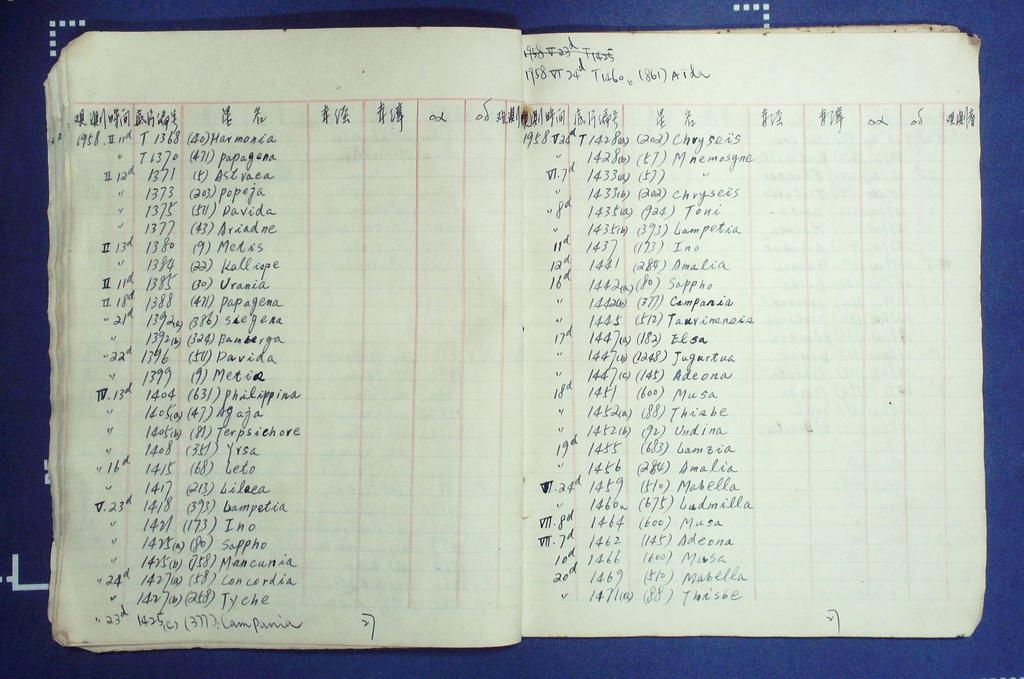 观测时间 底片编号 星名 赤经 赤纬 oα oδ 观测者
1958.II 11d T 1368 (40) Harmonia
" T 1370 (471) papagena
II 12d 1371 (5) Astraea
" 1373 (203) popeja
" 1375 (511) Davida
" 1377 (43) Ariadne
II 13d 1380 (9) Metis
" 1384 (22) Kalliope
II 11d 1385 (30) Urania
II 18d 1388 (471) papagena
" 21d 1392(a) (386) Siegena
" 1392(b) (324) Bamberga
" 22d 1396 (511) Davida
" 1399 (9) Metis
IV.13d 1404 (631) philippina
" 1405(a) (47) Agaja
" 1405(b) (81) Terpsichore
" 1408 (351) Yrsa
" 16d 1415 (68) Leto
" 1417 (213) Lilaea
V.23d 1418 (393) Lampetia
" 1421 (173) Ino
" 1425(a) (80) Sappho
" 1425(b) (758) Mancunia
" 24d 1427(a) (58) Concordia
" 1427(b) (258) Tyche
" 23d 1425(c) (377) Campania
27
1958 V 23d T1425
1958 VI 24d T1460b (861) Aida
观测时间 底片编号 星名 赤经 赤纬 oα oδ 观测者
1958.V 24d T 1428(a) (202) Chryseis
" 1428(b) (57) Mnemosyne
VI.7d 1433(a) (57) "
" 1433(b) (202) Chryseis
" 8d 1435(a) (924) Toni
" 1435(b) (393) Lampetia
11d 1437 (173) Ino
12d 1441 (284) Amalia
16d 1442(a) (80) Sappho
" 1442(b) (377) Campania
" 1445 (512) Taurinensis
17d 1447(a) (182) Elsa
" 1447(b) (1248) Jugurtua
" 1447(c) (145) Adeona
18d 1451 (600) Musa
" 1452(a) (88) Thisbe
" 1452(b) (92) Undina
19d 1455 (683) Lanzia
" 1456 (284) Amalia
VI.24d 1459 (510) Mabella
" 1460a (675) Ludmilla
VII.8d 1464 (600) Musa
VII.7d 1462 (145) Adeona
10d 1466 (600) Musa
20d 1469 (510) Mabella
" 1471(a) (88) Thisbe
27